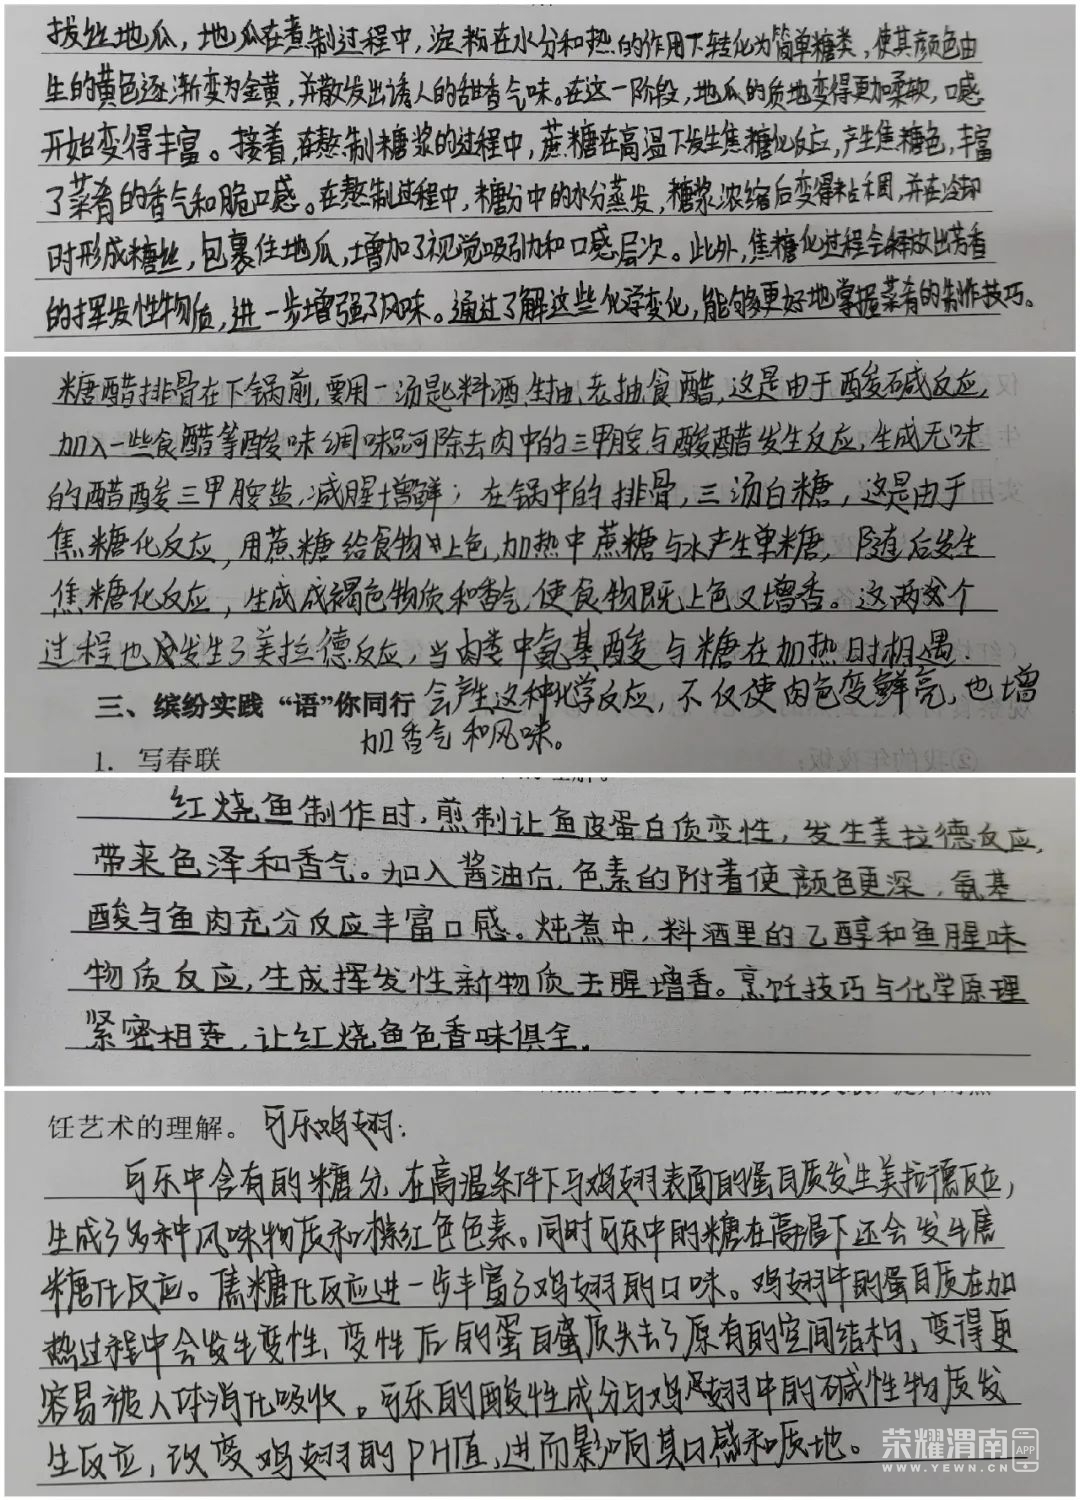 拔丝地瓜，地瓜在煮制过程中，淀粉在水分和热的作用下转化为简单糖类，使其颜色由
生的黄色逐渐变为金黄，并散发出诱人的甜香气味。在这一阶段，地瓜的质地变得更加柔软，口感
开始变得丰富。接着，在熬制糖浆的过程中，蔗糖在高温下发生焦糖化反应，产生焦糖色，丰富
了菜肴的香气和脆口感。在熬制过程中，糖分中的水分蒸发，糖浆浓缩后变得粘稠，并在冷却
时形成糖丝，包裹住地瓜，增加了视觉吸引力和口感层次。此外，焦糖化过程会释放出芳香
的挥发性物质，进一步增强了风味。通过了解这些化学变化，能够更好地掌握菜肴的制作技巧。
糖醋排骨在下锅前，要用一汤匙料酒、生抽、老抽、食醋，这是由于酸碱反应，
加入一些食醋等酸味调味品可除去肉中的三甲胺与酸醋发生反应，生成无味
的醋酸三甲胺盐，减腥增鲜；在锅中的排骨，三汤白糖，这是由于
焦糖化反应，用蔗糖给食物上色，加热中蔗糖与水产生单糖，随后发生
焦糖化反应，生成成褐色物质和香气，使食物既上色又增香。这两个
过程也发生了美拉德反应，当肉类中氨基酸与糖在加热时相遇.
三、缤纷实践 “语”你同行 会产生这种化学反应，不仅使肉色变鲜亮，也增
加香气和风味。
1. 写春联
红烧鱼制作时，煎制让鱼皮蛋白质变性，发生美拉德反应，
带来色泽和香气。加入酱油后，色素的附着使颜色更深，氨基
酸与鱼肉充分反应丰富口感。炖煮中，料酒里的乙醇和鱼腥味
物质反应，生成挥发性新物质去腥增香。烹饪技巧与化学原理
紧密相连，让红烧鱼色香味俱全。
饪艺术的理解。可乐鸡翅：
可乐中含有的糖分，在高温条件下与鸡翅表面的蛋白质发生美拉德反应，
生成了多种风味物质和棕红色色素。同时可乐中的糖在高温下还会发生焦
糖化反应。焦糖化反应进一步丰富了鸡翅的口味。鸡翅中的蛋白质在加
热过程中会发生变性，变性后的蛋白质失去了原有的空间结构，变得更
容易被人体消化吸收。可乐的酸性成分与鸡翅中的碱性物质发
生反应，改变鸡翅的PH值，进而影响其口感和质地。
荣耀渭南 APP
WWW.YEWN.CN